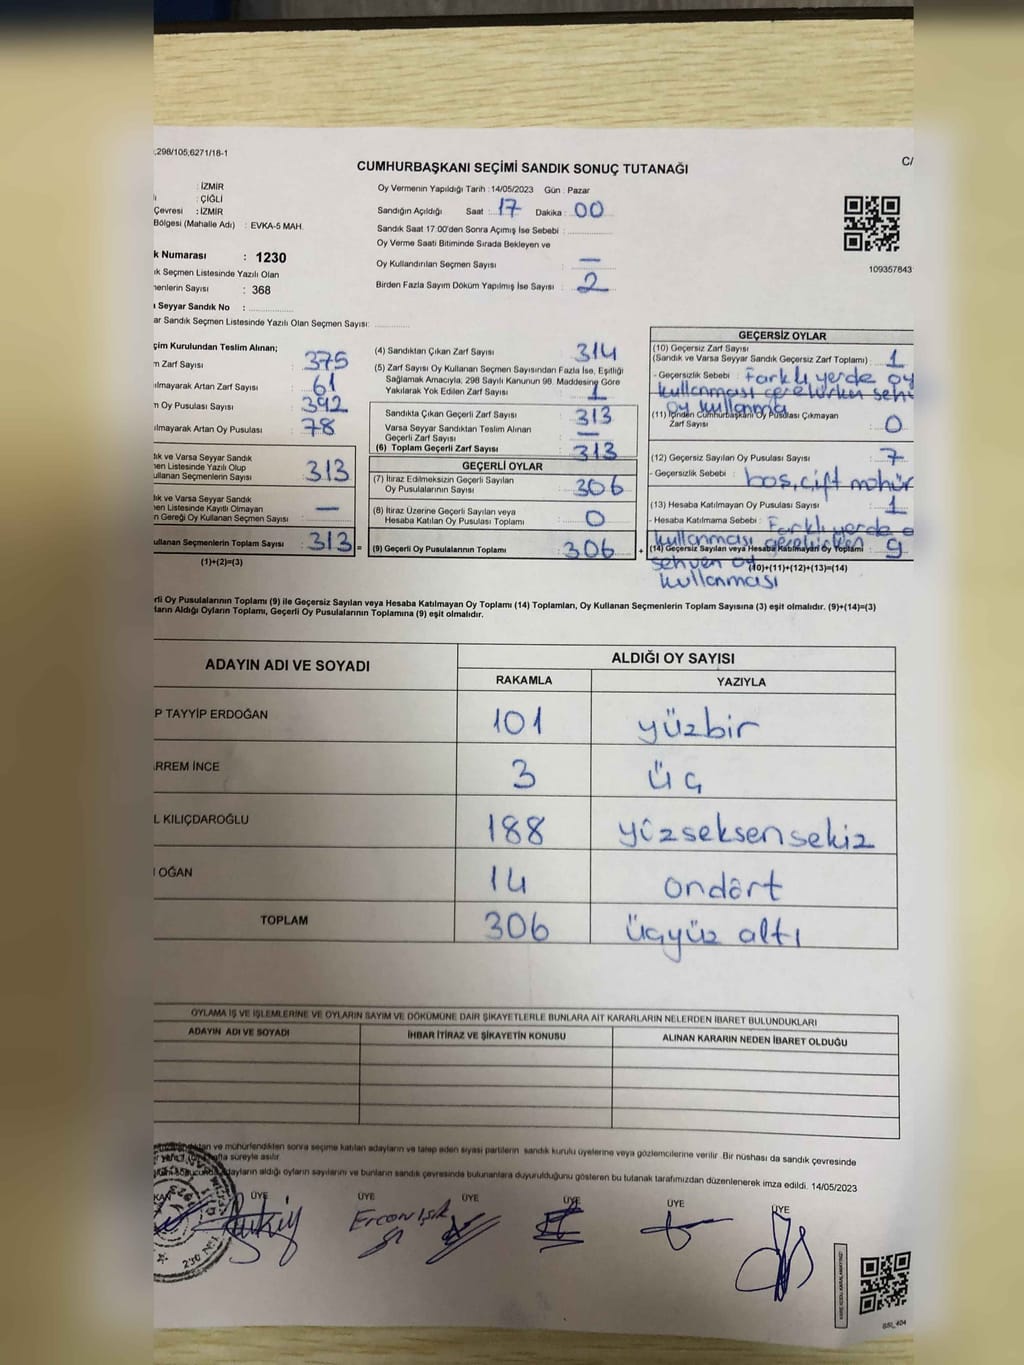 .298/105,6271/18-1
C/
CUMHURBAŞKANI SEÇİMİ SANDIK SONUÇ TUTANAĞI
: İZMİR
: ÇİĞLİ
Çevresi : İZMİR
Bölgesi (Mahalle Adı) : EVKA-5 MAH.
Oy Vermenin Yapıldığı Tarih :14/05/2023 Gün : Pazar
Sandığın Açıldığı Saat : 17 Dakika : 00
Sandık Saat 17:00'den Sonra Açımış İse Sebebi :
Oy Verme Saati Bitiminde Sırada Bekleyen ve
Oy Kullandırılan Seçmen Sayısı : —
Birden Fazla Sayım Döküm Yapılmış İse Sayısı : 2
109357843
k Numarası : 1230
ık Seçmen Listesinde Yazılı Olan
nenlerin Sayısı : 368
ı Seyyar Sandık No :
ar Sandık Seçmen Listesinde Yazılı Olan Seçmen Sayısı:
çim Kurulundan Teslim Alınan;
n Zarf Sayısı : 375
ılmayarak Artan Zarf Sayısı : 61
n Oy Pusulası Sayısı : 392
ılmayarak Artan Oy Pusulası : 78
ık ve Varsa Seyyar Sandık
nen Listesinde Yazılı Olup
ullanan Seçmenlerin Sayısı : 313
ık ve Varsa Seyyar Sandık
nen Listesinde Kayıtlı Olmayan
n Gereği Oy Kullanan Seçmen Sayısı : —
ullanan Seçmenlerin Toplam Sayısı : 313 =
(1)+(2)=(3)
(4) Sandıktan Çıkan Zarf Sayısı : 314
(5) Zarf Sayısı Oy Kullanan Seçmen Sayısından Fazla İse, Eşitliği
Sağlamak Amacıyla, 298 Sayılı Kanunun 98. Maddesine Göre
Yakılarak Yok Edilen Zarf Sayısı : 1
Sandıkta Çıkan Geçerli Zarf Sayısı : 313
Varsa Seyyar Sandıktan Teslim Alınan
Geçerli Zarf Sayısı : —
(6) Toplam Geçerli Zarf Sayısı : 313
GEÇERLİ OYLAR
(7) İtiraz Edilmeksizin Geçerli Sayılan
Oy Pusulalarının Sayısı : 306
(8) İtiraz Üzerine Geçerli Sayılan veya
Hesaba Katılan Oy Pusulası Toplamı : 0
(9) Geçerli Oy Pusulalarının Toplamı : 306 +
GEÇERSİZ OYLAR
(10) Geçersiz Zarf Sayısı
(Sandık ve Varsa Seyyar Sandık Geçersiz Zarf Toplamı) : 1
- Geçersizlik Sebebi : Farklı yerde oy
kullanması gerekirken sehv
oy kullanma
(11) İçinden Cumhurbaşkanı Oy Pusulası Çıkmayan
Zarf Sayısı : 0
(12) Geçersiz Sayılan Oy Pusulası Sayısı : 7
- Geçersizlik Sebebi : boş, çift mühür
(13) Hesaba Katılmayan Oy Pusulası Sayısı : 1
- Hesaba Katılmama Sebebi : Farklı yerde o
kullanması gerekirken
(14) Geçersiz Sayılan veya Hesaba Katılmayan Oy Toplamı : 9
sehven oy
(10)+(11)+(12)+(13)=(14)
kullanması
rli Oy Pusulalarının Toplamı (9) ile Geçersiz Sayılan veya Hesaba Katılmayan Oy Toplamı (14) Toplamları, Oy Kullanan Seçmenlerin Toplam Sayısına (3) eşit olmalıdır. (9)+(14)=(3)
ların Aldığı Oyların Toplamı, Geçerli Oy Pusulalarının Toplamına (9) eşit olmalıdır.
ADAYIN ADI VE SOYADI
ALDIĞI OY SAYISI
RAKAMLA YAZIYLA
P TAYYİP ERDOĞAN 101 yüzbir
RREM İNCE 3 üç
L KILIÇDAROĞLU 188 yüzseksensekiz
OĞAN 14 ondört
TOPLAM 306 üçyüz altı
OYLAMA İŞ VE İŞLEMLERİNE VE OYLARIN SAYIM VE DÖKÜMÜNE DAİR ŞİKAYETLERLE BUNLARA AİT KARARLARIN NELERDEN İBARET BULUNDUKLARI
ADAYIN ADI VE SOYADI İHBAR İTİRAZ VE ŞİKAYETİN KONUSU ALINAN KARARIN NEDEN İBARET OLDUĞU
ve mühürlendikten sonra seçime katılan adayların ve talep eden siyasi partilerin sandık kurulu üyelerine veya gözlemcilerine verilir .Bir nüshası da sandık çevresinde
hafta süreyle asılır.
adayların aldığı oyların sayılarını ve bunların sandık çevresinde bulunanlara duyurulduğunu gösteren bu tutanak tarafımızdan düzenlenerek imza edildi. 14/05/2023
ÜYE ÜYE ÜYE ÜYE ÜYE ÜYE
Ercan Işık
SSİ_404